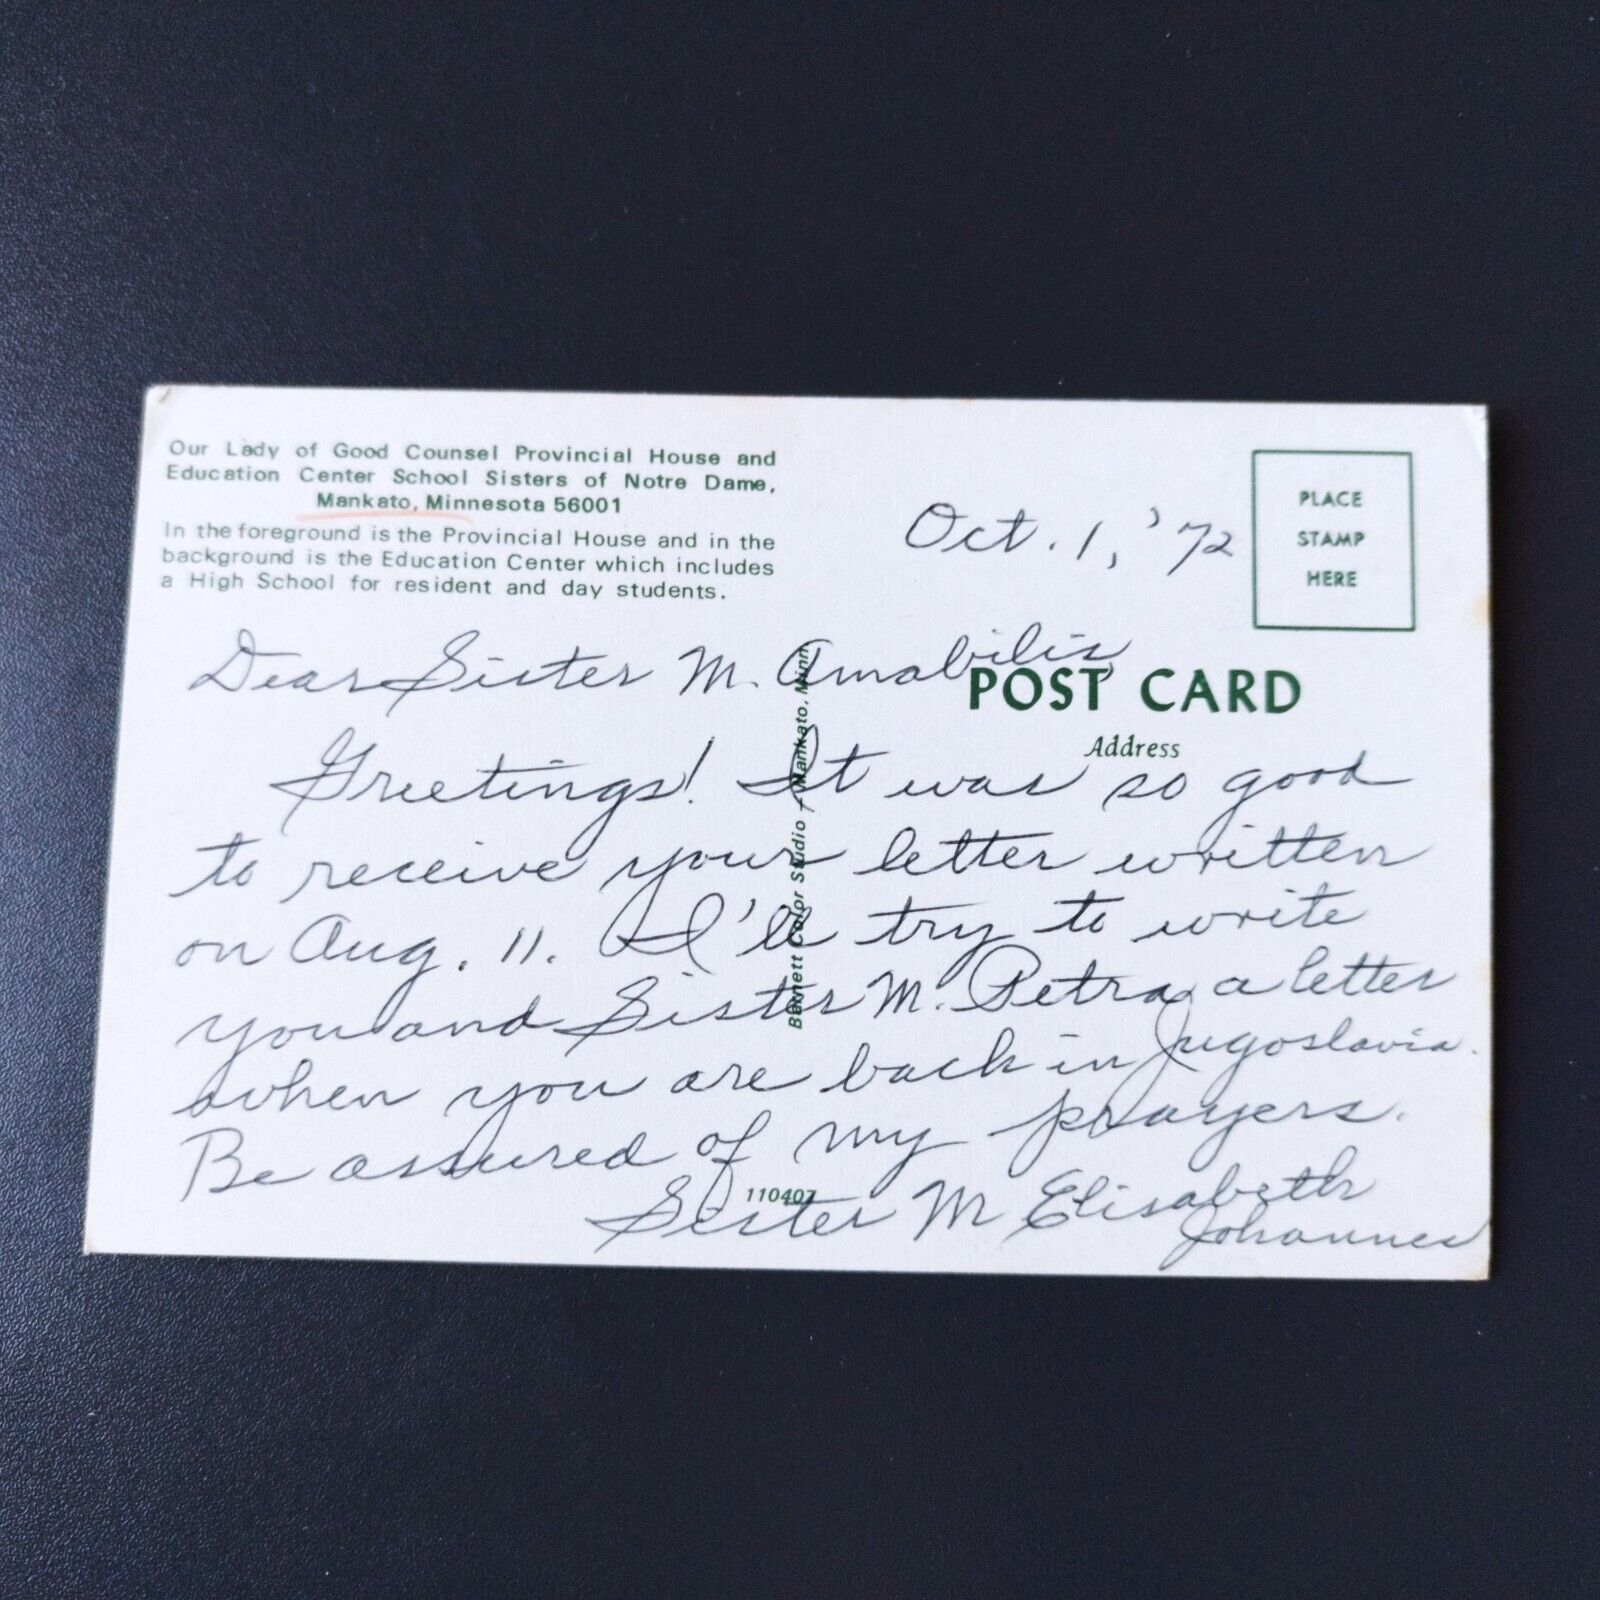 Our Lady of Good Counsel Provincial House and
Education Center School Sisters of Notre Dame,
Mankato, Minnesota 56001
In the foreground is the Provincial House and in the
background is the Education Center which includes
a High School for resident and day students.
PLACE
STAMP
HERE
Oct. 1, '72
POST CARD
Address
Dear Sister M. Amabilis,
Greetings! It was so good
to receive your letter written
on Aug. 11. I'll try to write
you and Sister M. Petra a letter
when you are back in Jugoslavia.
Be assured of my prayers.
Sister M Elisabeth
Johannes
Burnett Color Studio - Mankato, Minn
110407